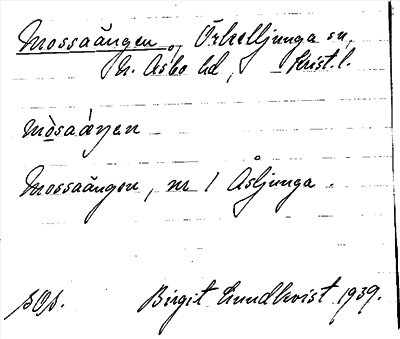 Mossaängen, Örkelljunga sn,
N. Åsbo hd, Krist. l.
mòsaáŋen
Mossaängen, nr 1 Åsljunga.
sOp. Birgit Lundkvist 1939.